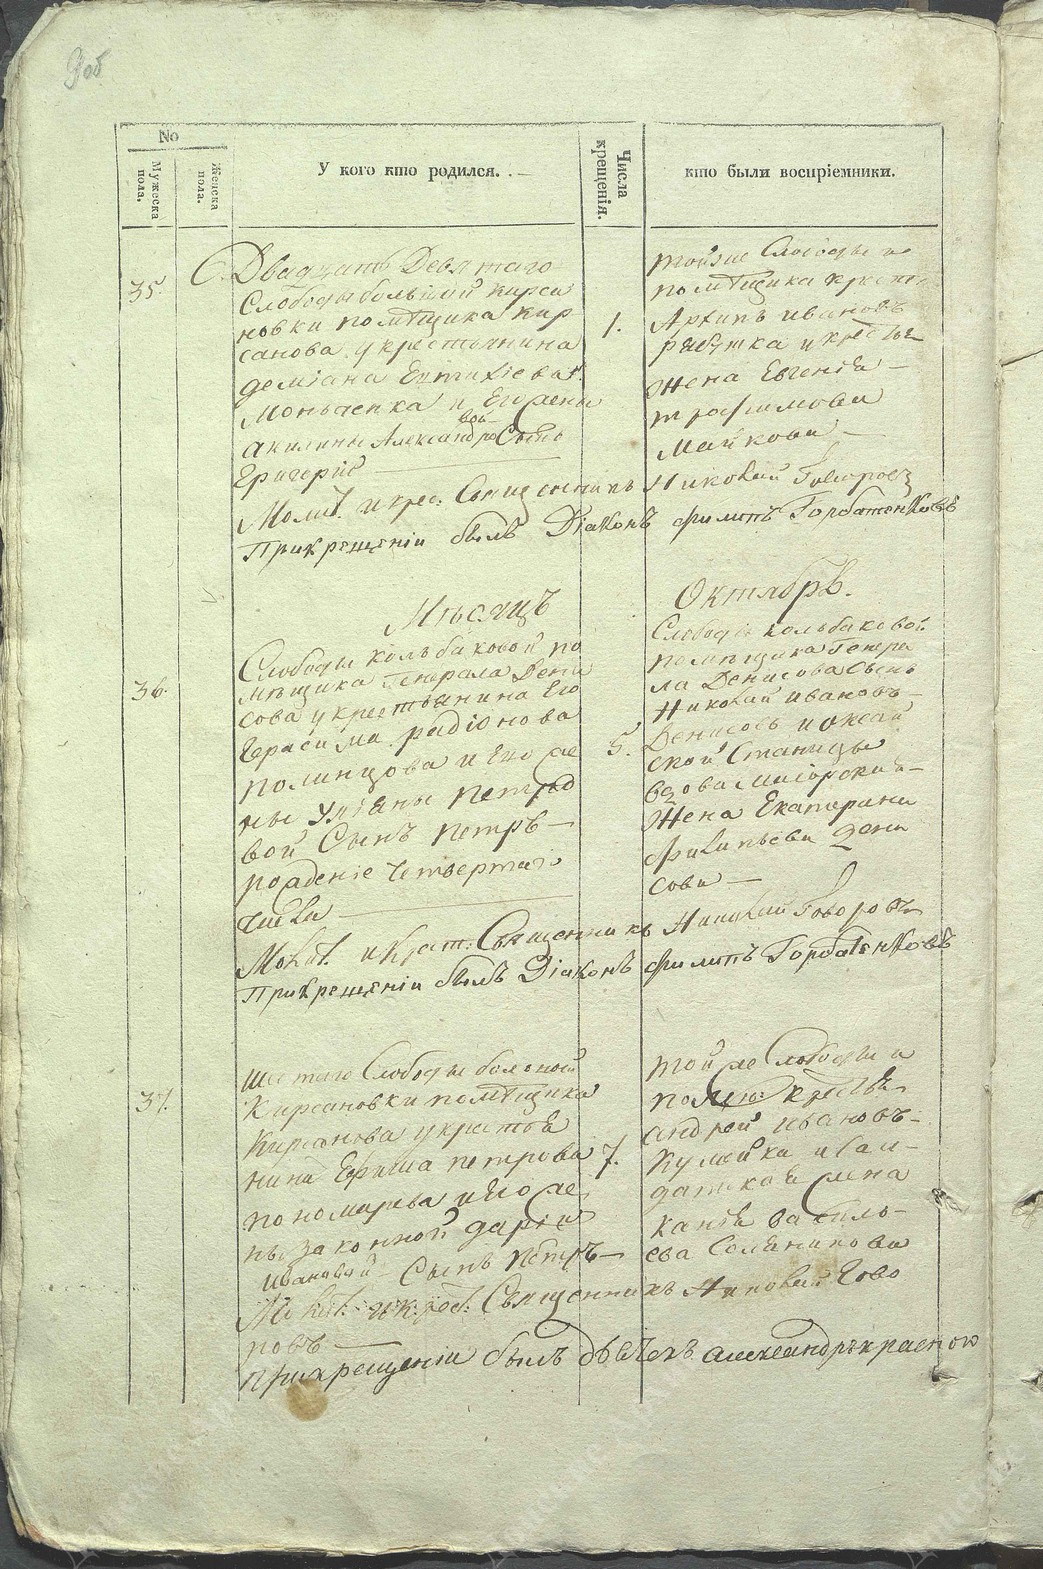 9 об
№
Мужеска пола.
Женска пола.
У кого кто родился.
Числа крещенія.
кто были воспріемники.
35.
Двадцать Девятаго
Слободы большой кирса
новки помѣщика Кир
санова у крестьянина
деміана Евтихіева
Моньченка и Его жены
акилины Александровой Сынъ
Григорій
1.
тойже Слободы и
помѣщика крест
Архипъ ивановъ
рябушка и крестья
жена Евгенія
трофимова
Майкова
Молит. и крес. Священникъ Николай Говоровъ
При крещеніи былъ Діаконъ Филипъ Горбатенковъ
Мѣсяцъ Октябрь.
36.
Слободы кольбаковой по
мѣщика Генерала Дени
сова у крестьянина Его
Герасима радіонова
полинцова и Его же
ны Уліяны петро
вой Сынъ петръ
рожденіе Четвертаго
числа
5.
Слободы кольбаковой
помѣщика Генера
ла Денисова Сынъ
Николай ивановъ
Денисовъ и
ской Станицы
жена Екатерина
Филипьева Дени
сова
Молит. и Крест. Священникъ Николай Говоровъ
При крещеніи былъ Діаконъ Филипъ Горбатенковъ
37.
Шестаго Слободы большой
Кирсановки помѣщика
Кирсанова у крестья
нина Ефима петрова
пономарева и Его же
ны законной даріи
ивановой Сынъ петръ
7.
той же Слободы и
помѣщ: крестья
андрей ивановъ
кулейка и Сал
датская жена
василь
ева
Молит. и крест. Священникъ Николай Гово
ровъ
При крещеніи былъ дьячекъ александръ красного